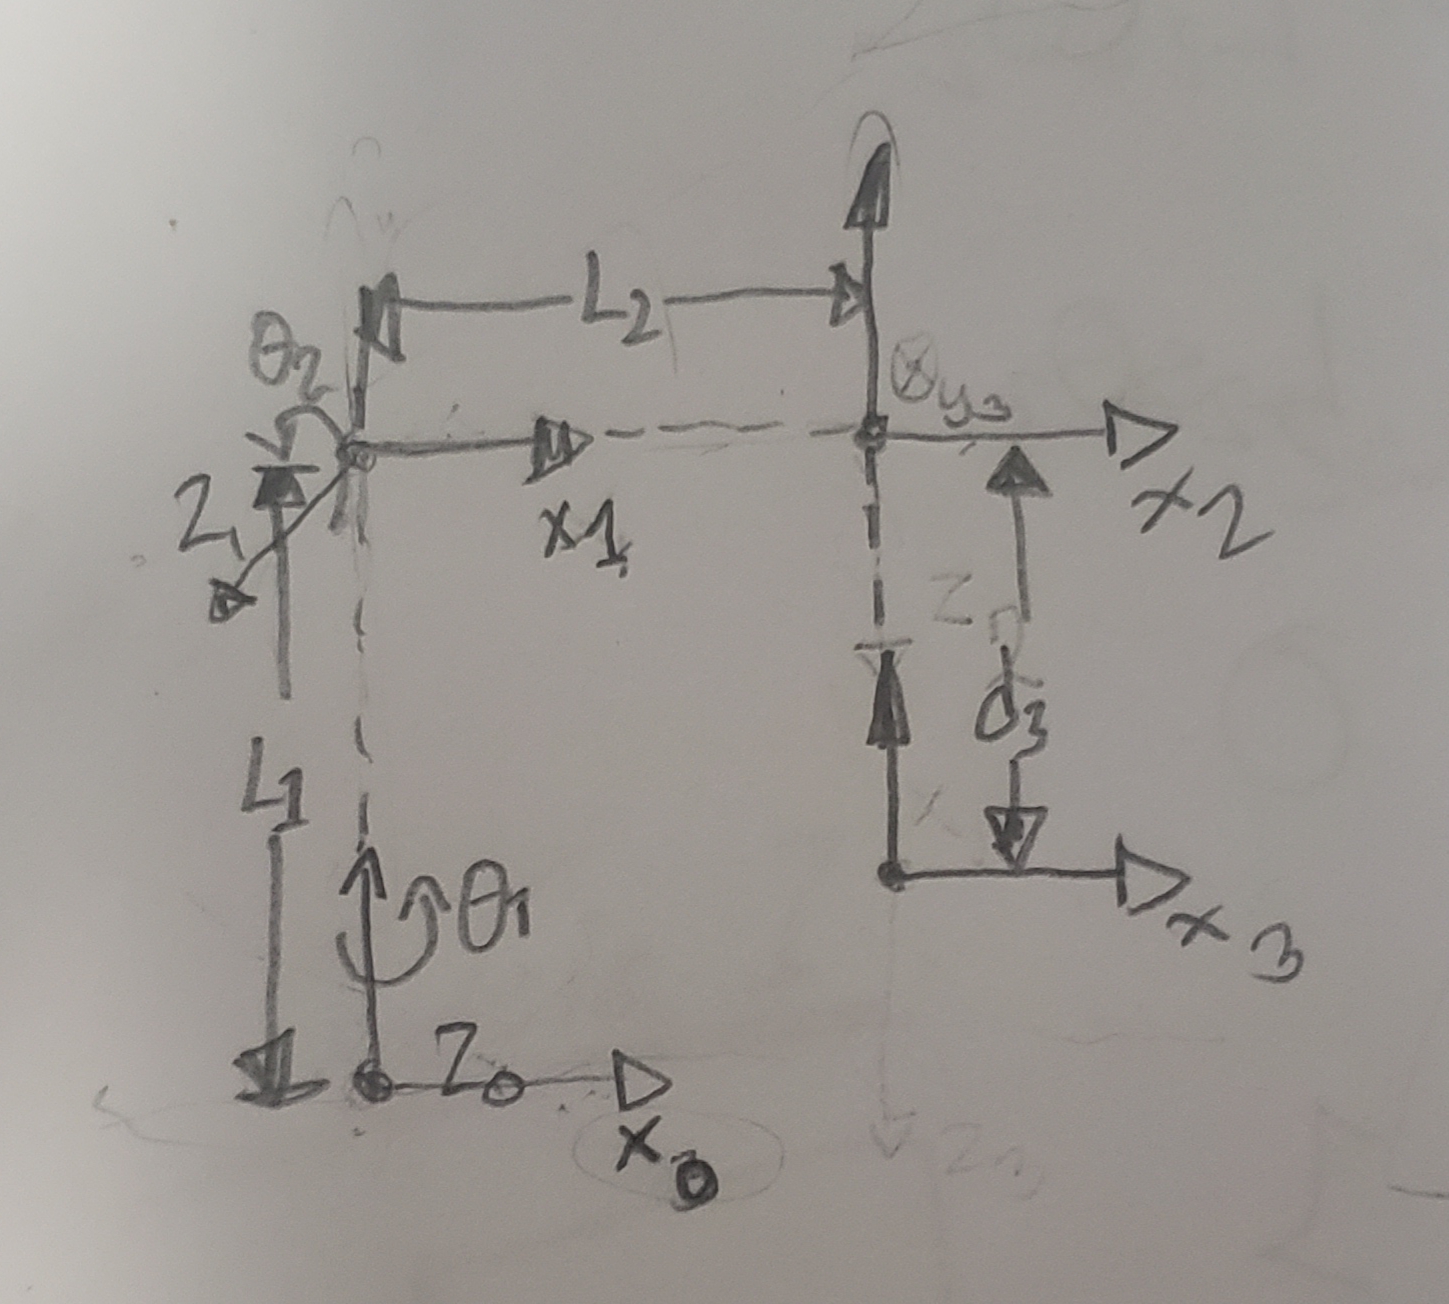 L2
θ2
⊗y3
Z1
x1
x2
Z
d3
L1
θ1
x3
Zo
x0